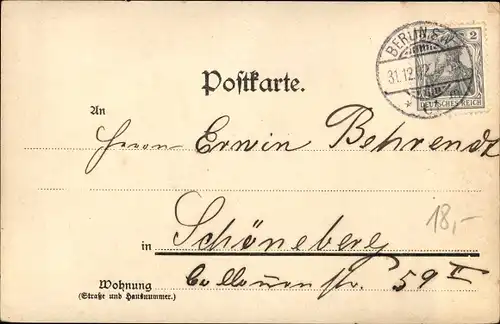 BERLIN S.W.
31.12.02
2
DEUTSCHES REICH
Postkarte.
An
Herrn Erwin Behrendt
18,-
in Schöneberg
Wohnung
(Straße und Hausnummer.)
59 II